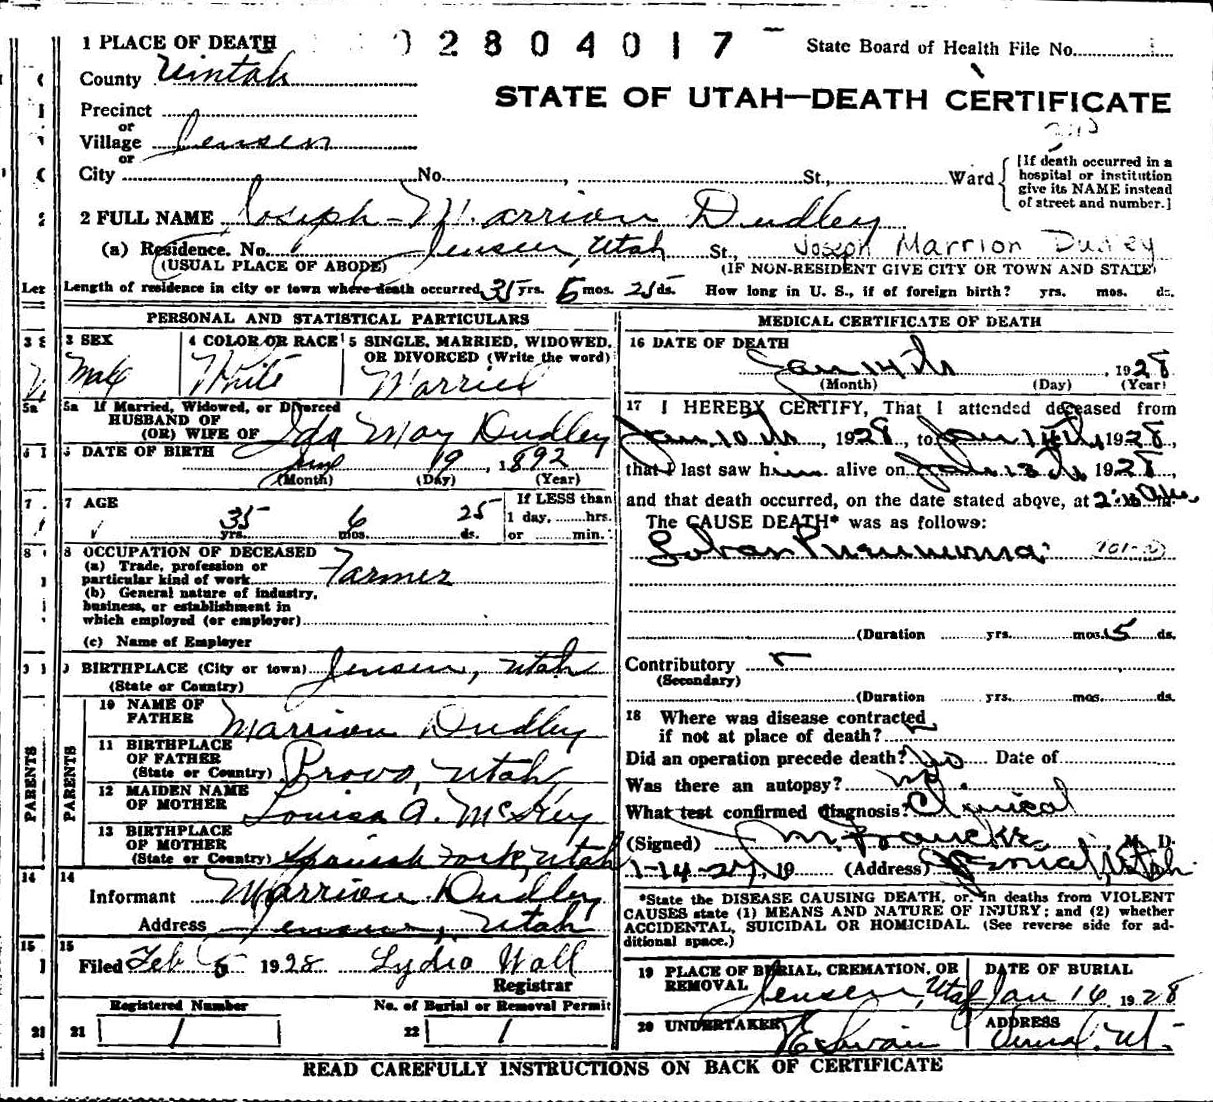 1 PLACE OF DEATH 02804017 State Board of Health File No.
County Uintah
STATE OF UTAH—DEATH CERTIFICATE
Precinct
or
Village Jensen
or
City No. , St., Ward
[If death occurred in a
hospital or institution
give its NAME instead
of street and number.]
2 FULL NAME Joseph Marrion Dudley
(a) Residence. No. Jensen, Utah St., Joseph Marrion Dudley
(USUAL PLACE OF ABODE) (IF NON-RESIDENT GIVE CITY OR TOWN AND STATE)
Length of residence in city or town where death occurred 35 yrs. 6 mos. 25 ds. How long in U. S., if of foreign birth? yrs. mos. ds.
PERSONAL AND STATISTICAL PARTICULARS
3 SEX 4 COLOR OR RACE 5 SINGLE, MARRIED, WIDOWED,
OR DIVORCED (Write the word)
Male White Married
5a If Married, Widowed, or Divorced
HUSBAND OF
(OR) WIFE OF Ida May Dudley
6 DATE OF BIRTH
June 19, 1892
(Month) (Day) (Year)
7 AGE If LESS than
35 6 25 1 day, hrs.
yrs. mos. ds. or min.
8 OCCUPATION OF DECEASED
(a) Trade, profession or
particular kind of work Farmer
(b) General nature of industry,
business, or establishment in
which employed (or employer)
(c) Name of Employer
9 BIRTHPLACE (City or town) Jensen, Utah
(State or Country)
PARENTS
PARENTS
10 NAME OF
FATHER Marrion Dudley
11 BIRTHPLACE
OF FATHER
(State or Country) Provo, Utah
12 MAIDEN NAME
OF MOTHER Louisa A. McKey
13 BIRTHPLACE
OF MOTHER
(State or Country) Spanish Fork, Utah
14
Informant Marrion Dudley
Address Jensen, Utah
15
Filed Feb 5 1928 Lydia Wall
Registrar
Registered Number No. of Burial or Removal Permit
21 1 22 1
MEDICAL CERTIFICATE OF DEATH
16 DATE OF DEATH
Jan 14th, 1928
(Month) (Day) (Year)
17 I HEREBY CERTIFY, That I attended deceased from
Jan 10th, 1928, to Jan 14th, 1928,
that I last saw him alive on Jan 13th 1928
and that death occurred, on the date stated above, at
The CAUSE DEATH* was as follows:
Lobar Pneumonia
(Duration yrs. mos. 5 ds.
Contributory
(Secondary)
(Duration yrs. mos. ds.
18 Where was disease contracted
if not at place of death?
Did an operation precede death? No Date of
Was there an autopsy? no
What test confirmed diagnosis? Clinical
(Signed) M. D.
1-14-27, 19 (Address) Utah
*State the DISEASE CAUSING DEATH, or, in deaths from VIOLENT
CAUSES state (1) MEANS AND NATURE OF INJURY; and (2) whether
ACCIDENTAL, SUICIDAL OR HOMICIDAL. (See reverse side for ad-
ditional space.)
19 PLACE OF BURIAL, CREMATION, OR DATE OF BURIAL
REMOVAL
Jensen, Utah Jan 16 1928
20 UNDERTAKER ADDRESS
Swain Vernal, Ut.
READ CAREFULLY INSTRUCTIONS ON BACK OF CERTIFICATE